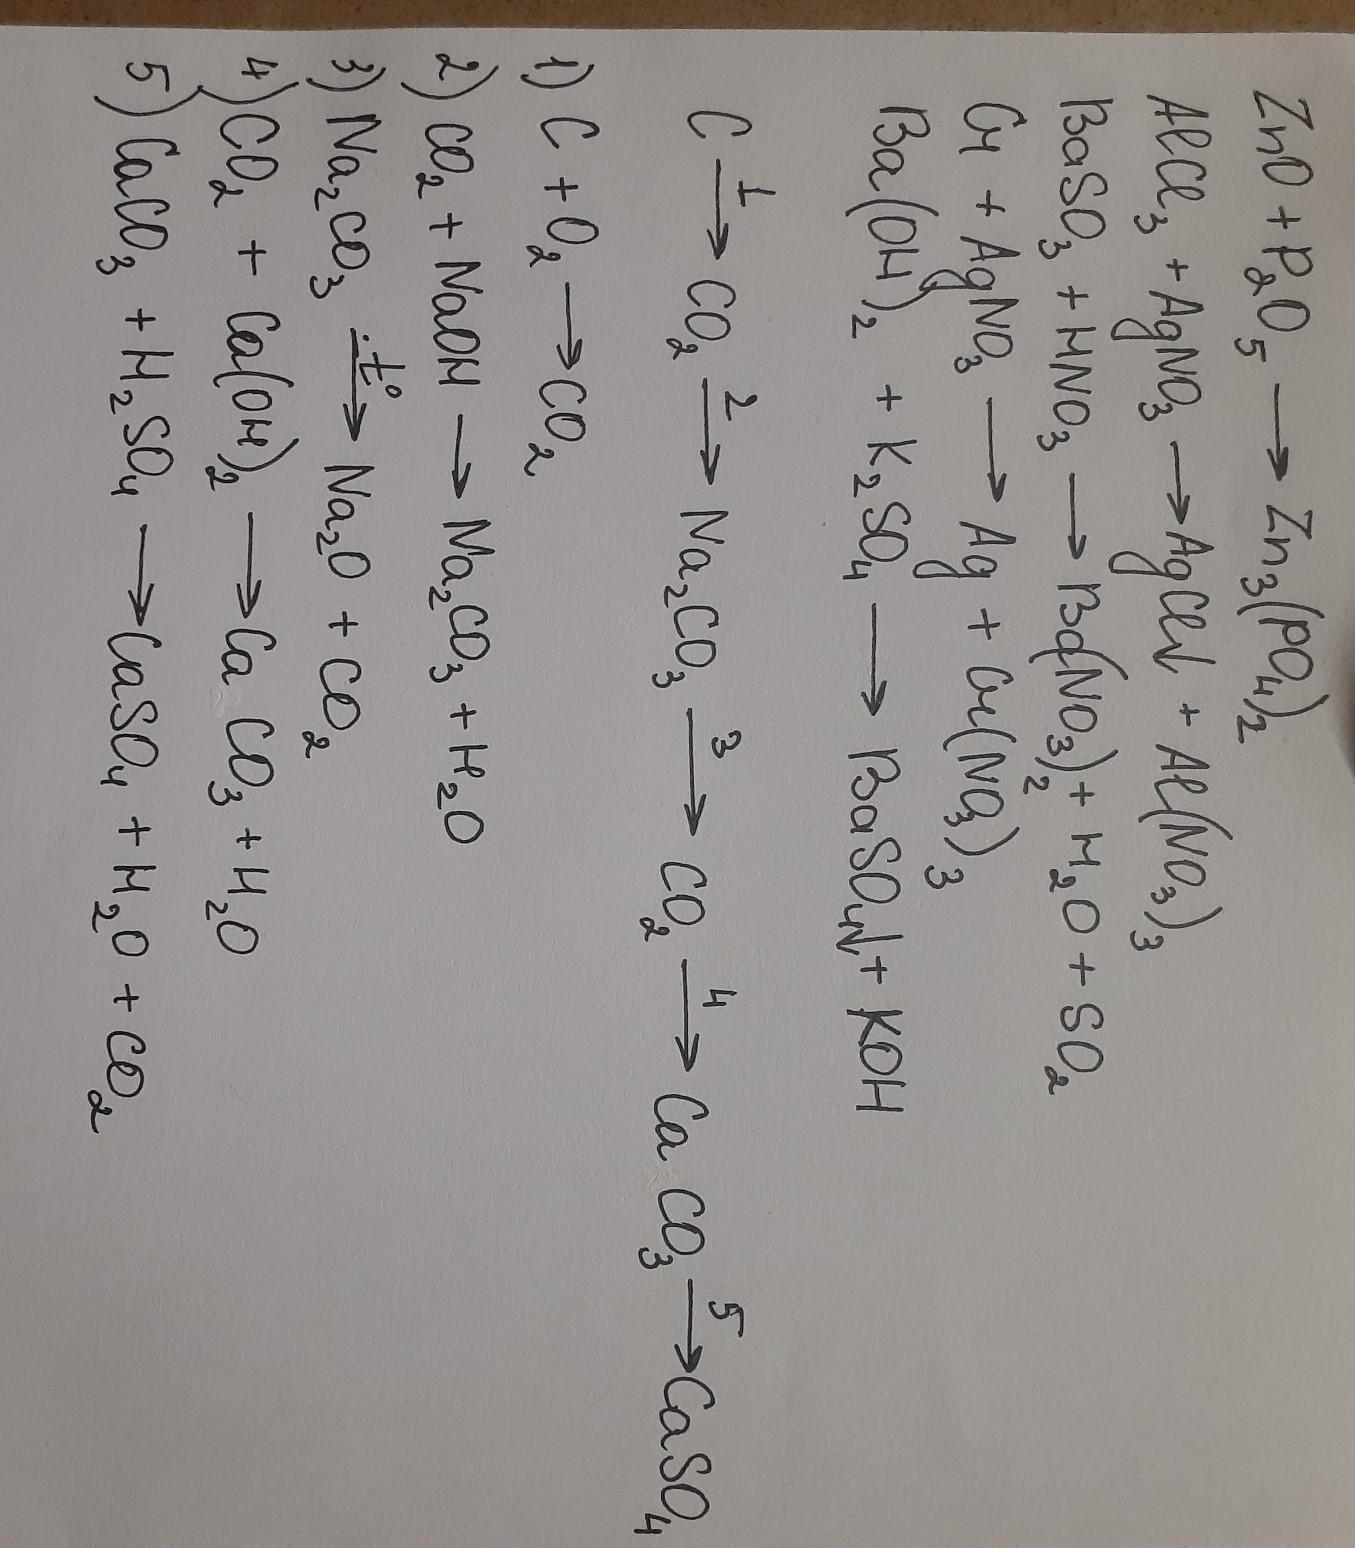 ZnO + P₂O₅ → Zn₃(PO₄)₂
AlCl₃ + AgNO₃ → AgCl↓ + Al(NO₃)₃
BaSO₃ + HNO₃ → Ba(NO₃)₂ + H₂O + SO₂
Cr + AgNO₃ → Ag + Cr(NO₃)₃
Ba(OH)₂ + K₂SO₄ → BaSO₄↓ + KOH
C 1→ CO₂ 2→ Na₂CO₃ 3→ CO₂ 4→ CaCO₃ 5→ CaSO₄
1) C + O₂ → CO₂
2) CO₂ + NaOH → Na₂CO₃ + H₂O
3) Na₂CO₃ t°→ Na₂O + CO₂
4) CO₂ + Ca(OH)₂ → CaCO₃ + H₂O
5) CaCO₃ + H₂SO₄ → CaSO₄ + H₂O + CO₂